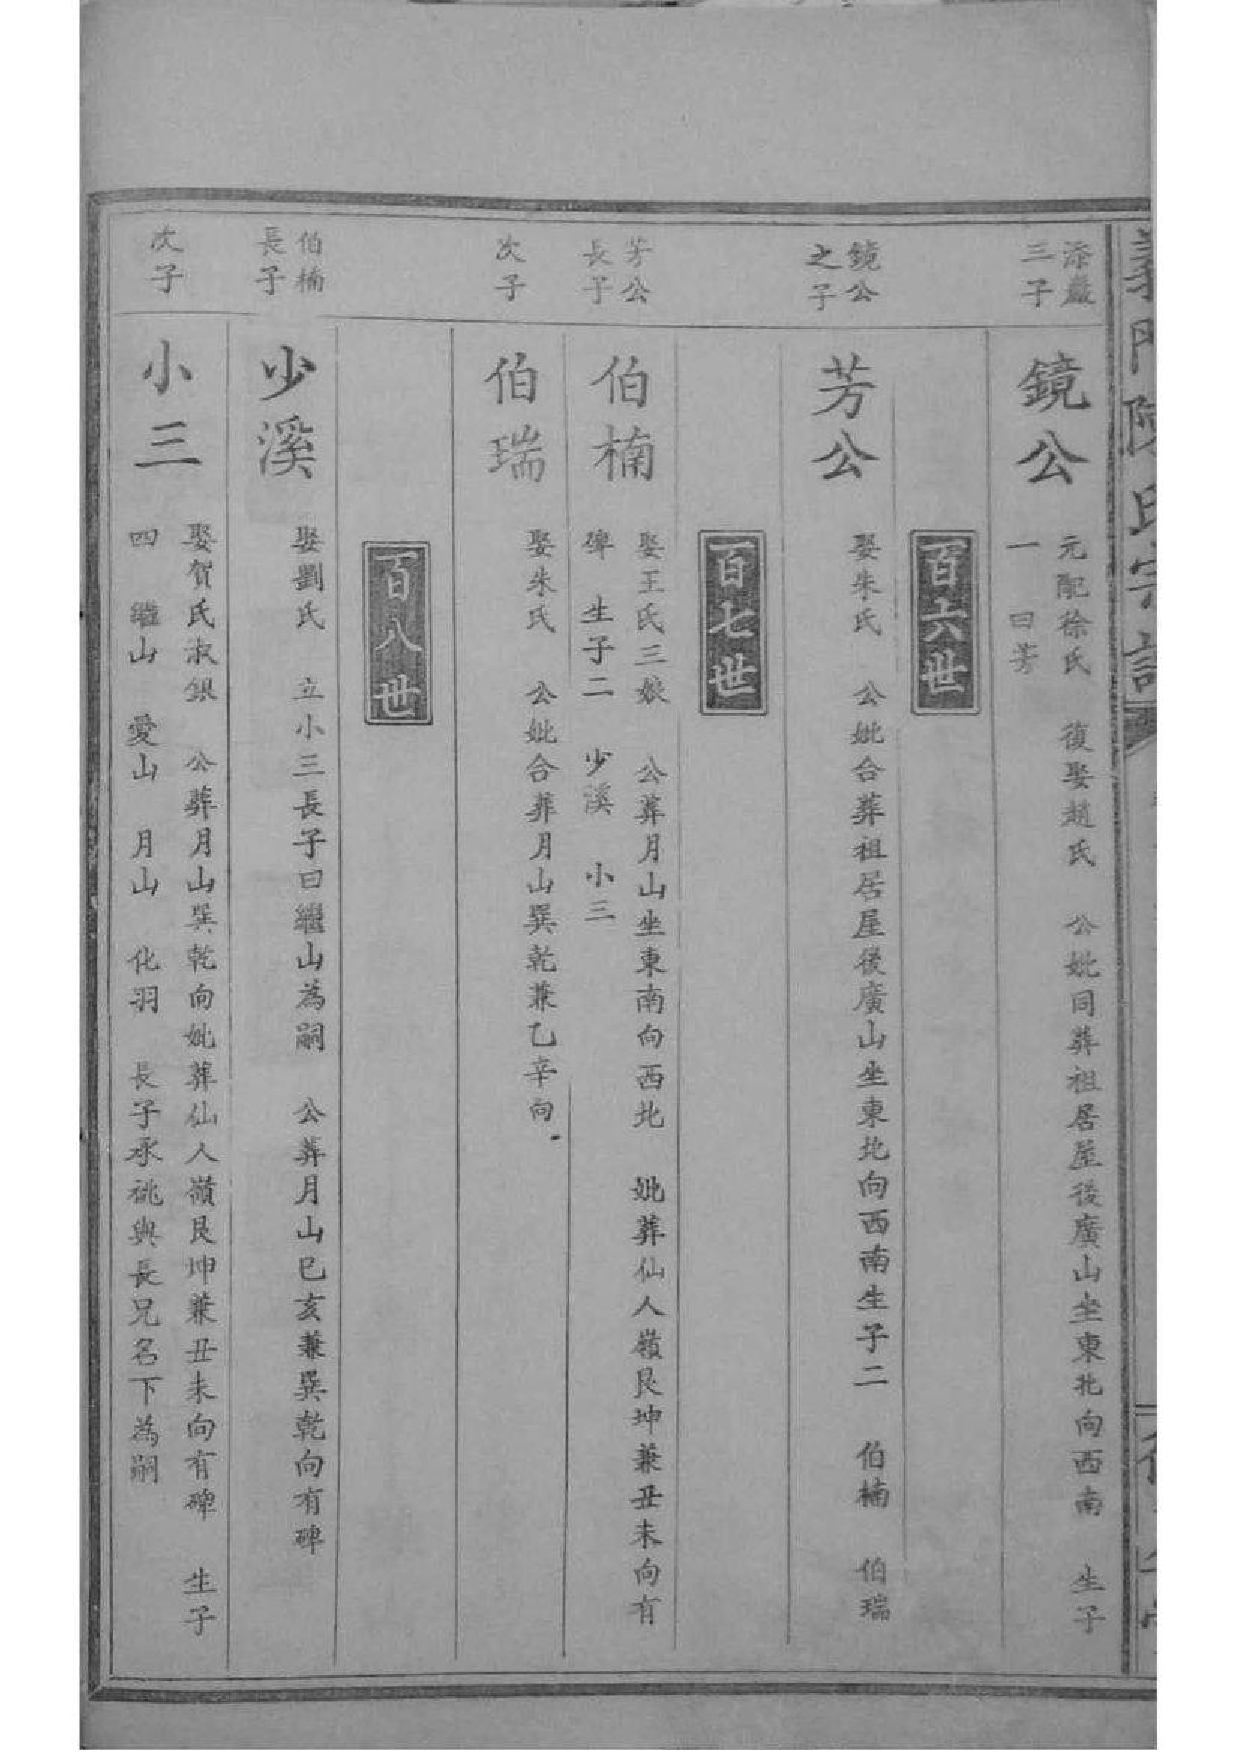 義門陳氏宗譜
添巖
三子
鏡公
元配徐氏 復娶趙氏 公妣同葬祖居屋後廣山坐東北向西南 生子
一 曰芳
百六世
鏡公
之子
芳公
娶朱氏 公妣合葬祖居屋後廣山坐東北向西南生子二 伯楠 伯瑞
百七世
芳公
長子
伯楠
娶王氏三娘 公葬月山坐東南向西北 妣葬仙人嶺艮坤兼丑未向有
碑 生子二 少溪 小三
次子
伯瑞
娶朱氏 公妣合葬月山巽乾兼乙辛向
百八世
伯楠
長子
少溪
娶劉氏 立小三長子曰繼山為嗣 公葬月山巳亥兼巽乾向有碑
次子
小三
娶賀氏淑銀 公葬月山巽乾向妣葬仙人嶺艮坤兼丑未向有碑 生子
四 繼山 愛山 月山 化羽 長子承祧與長兄名下為嗣